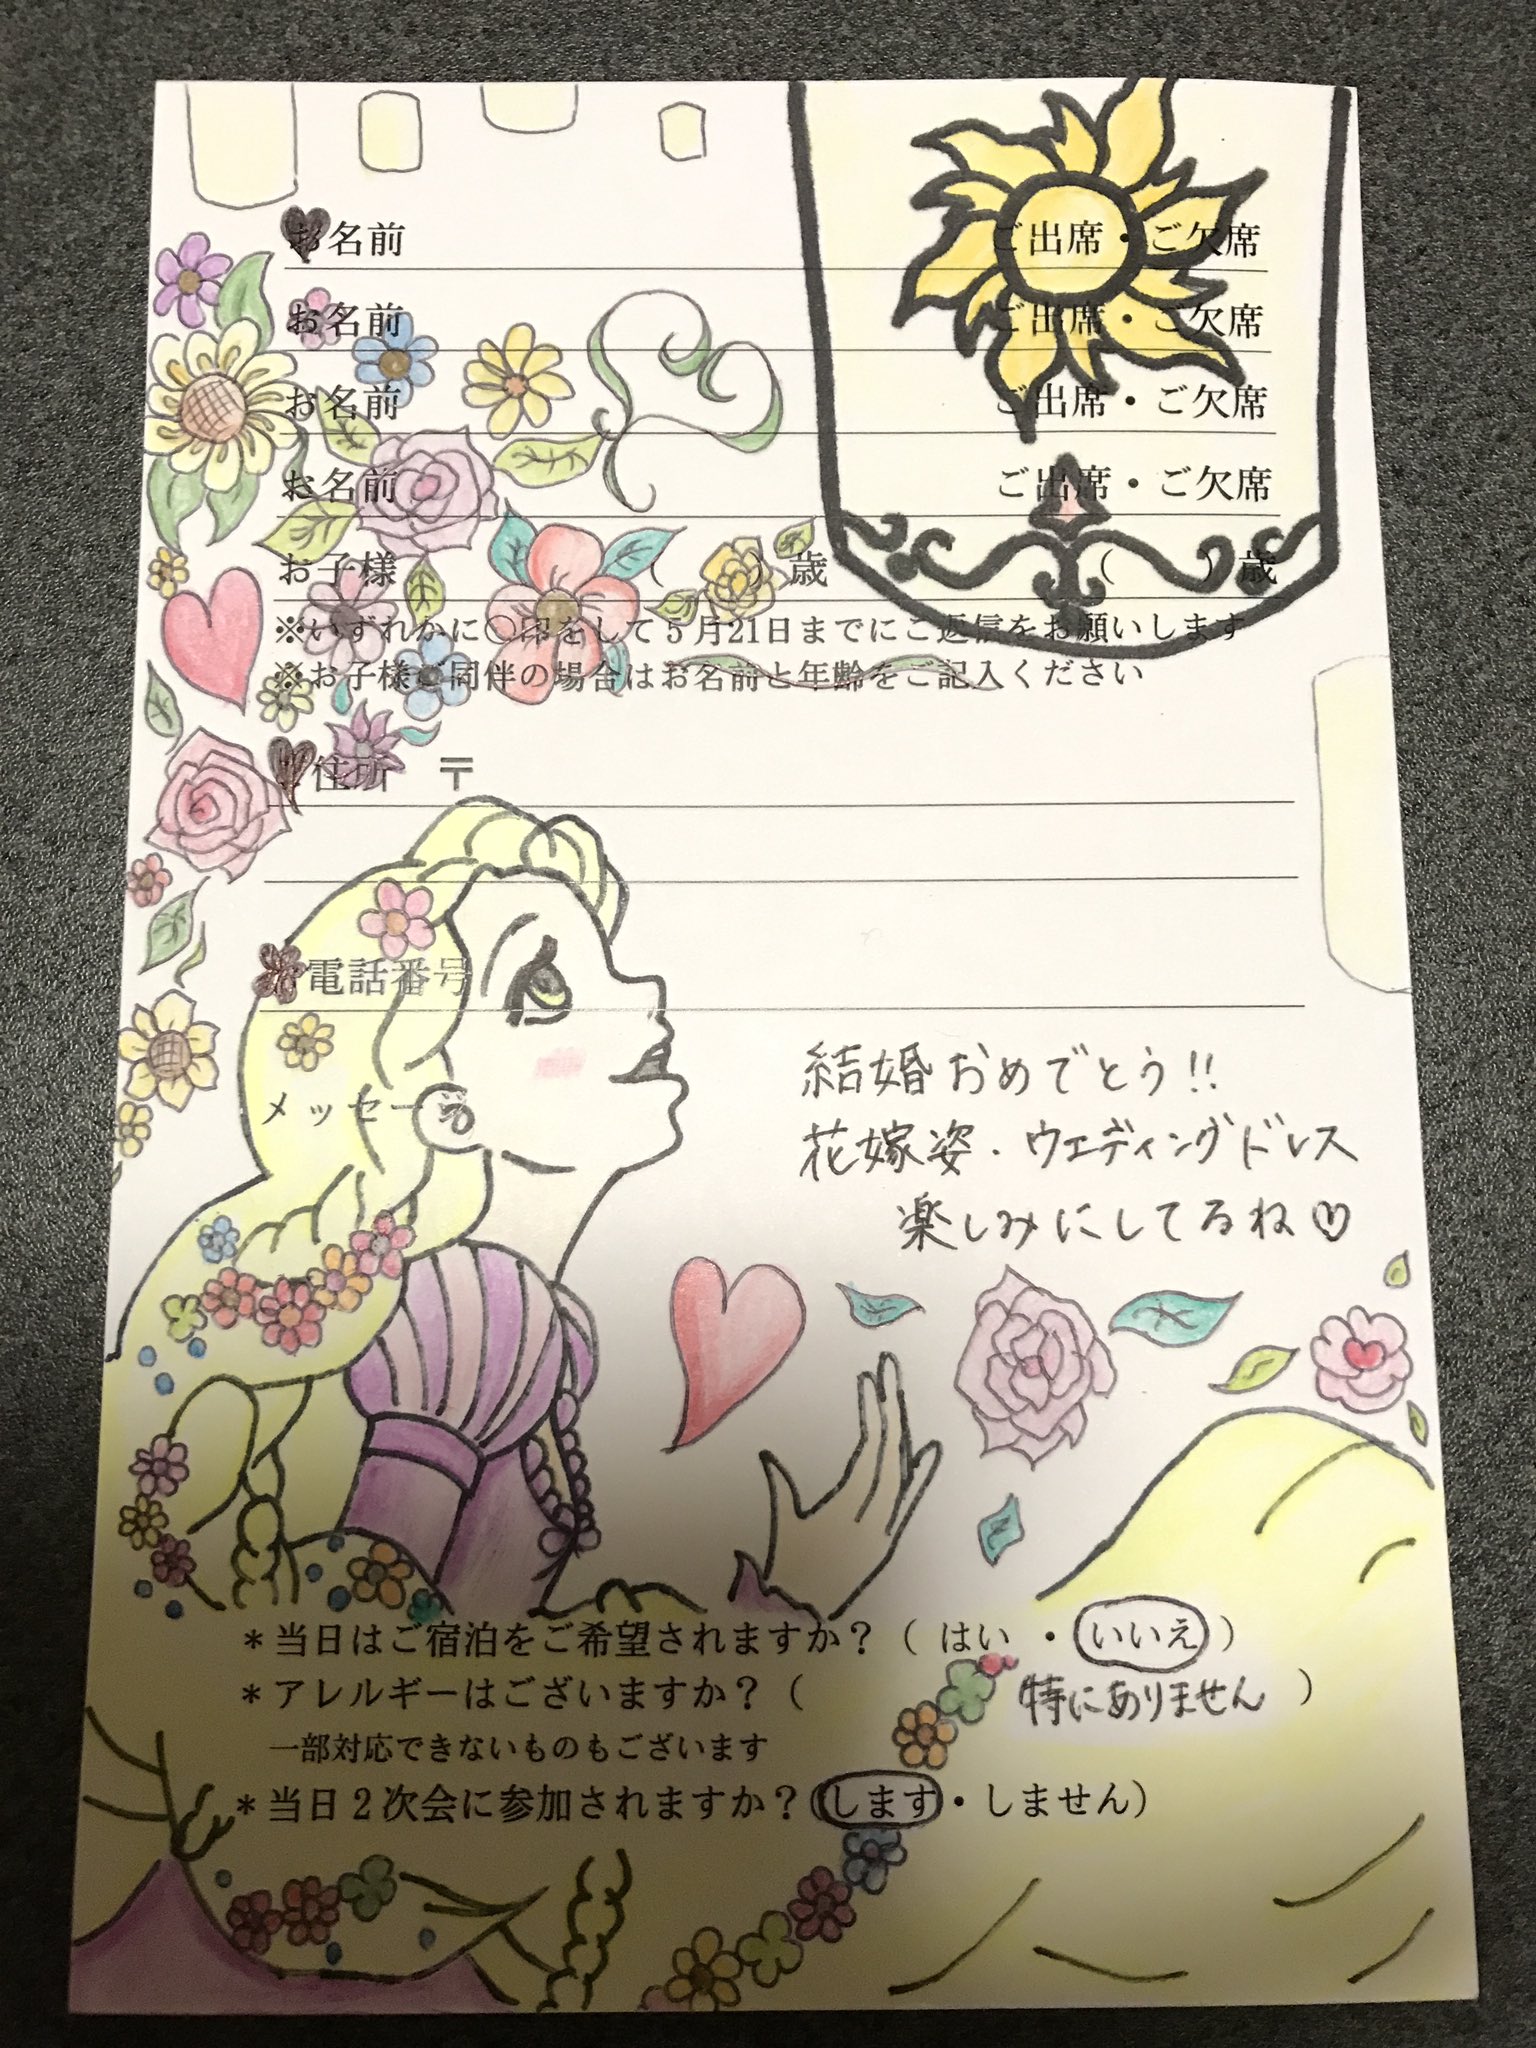 お名前 ご出席・ご欠席
お名前 ご出席・ご欠席
お名前 ご出席・ご欠席
お名前 ご出席・ご欠席
お子様 ( ) 歳 ( ) 歳
※いずれかに○印をして5月21日までにご返信をお願いします
※お子様ご同伴の場合はお名前と年齢をご記入ください
住所 〒
電話番号
メッセージ
結婚おめでとう!!
花嫁姿・ウェディングドレス
楽しみにしてるね♡
*当日はご宿泊をご希望されますか?( はい ・ いいえ )
*アレルギーはございますか?( 特にありません )
一部対応できないものもございます
*当日2次会に参加されますか?(します・しません)